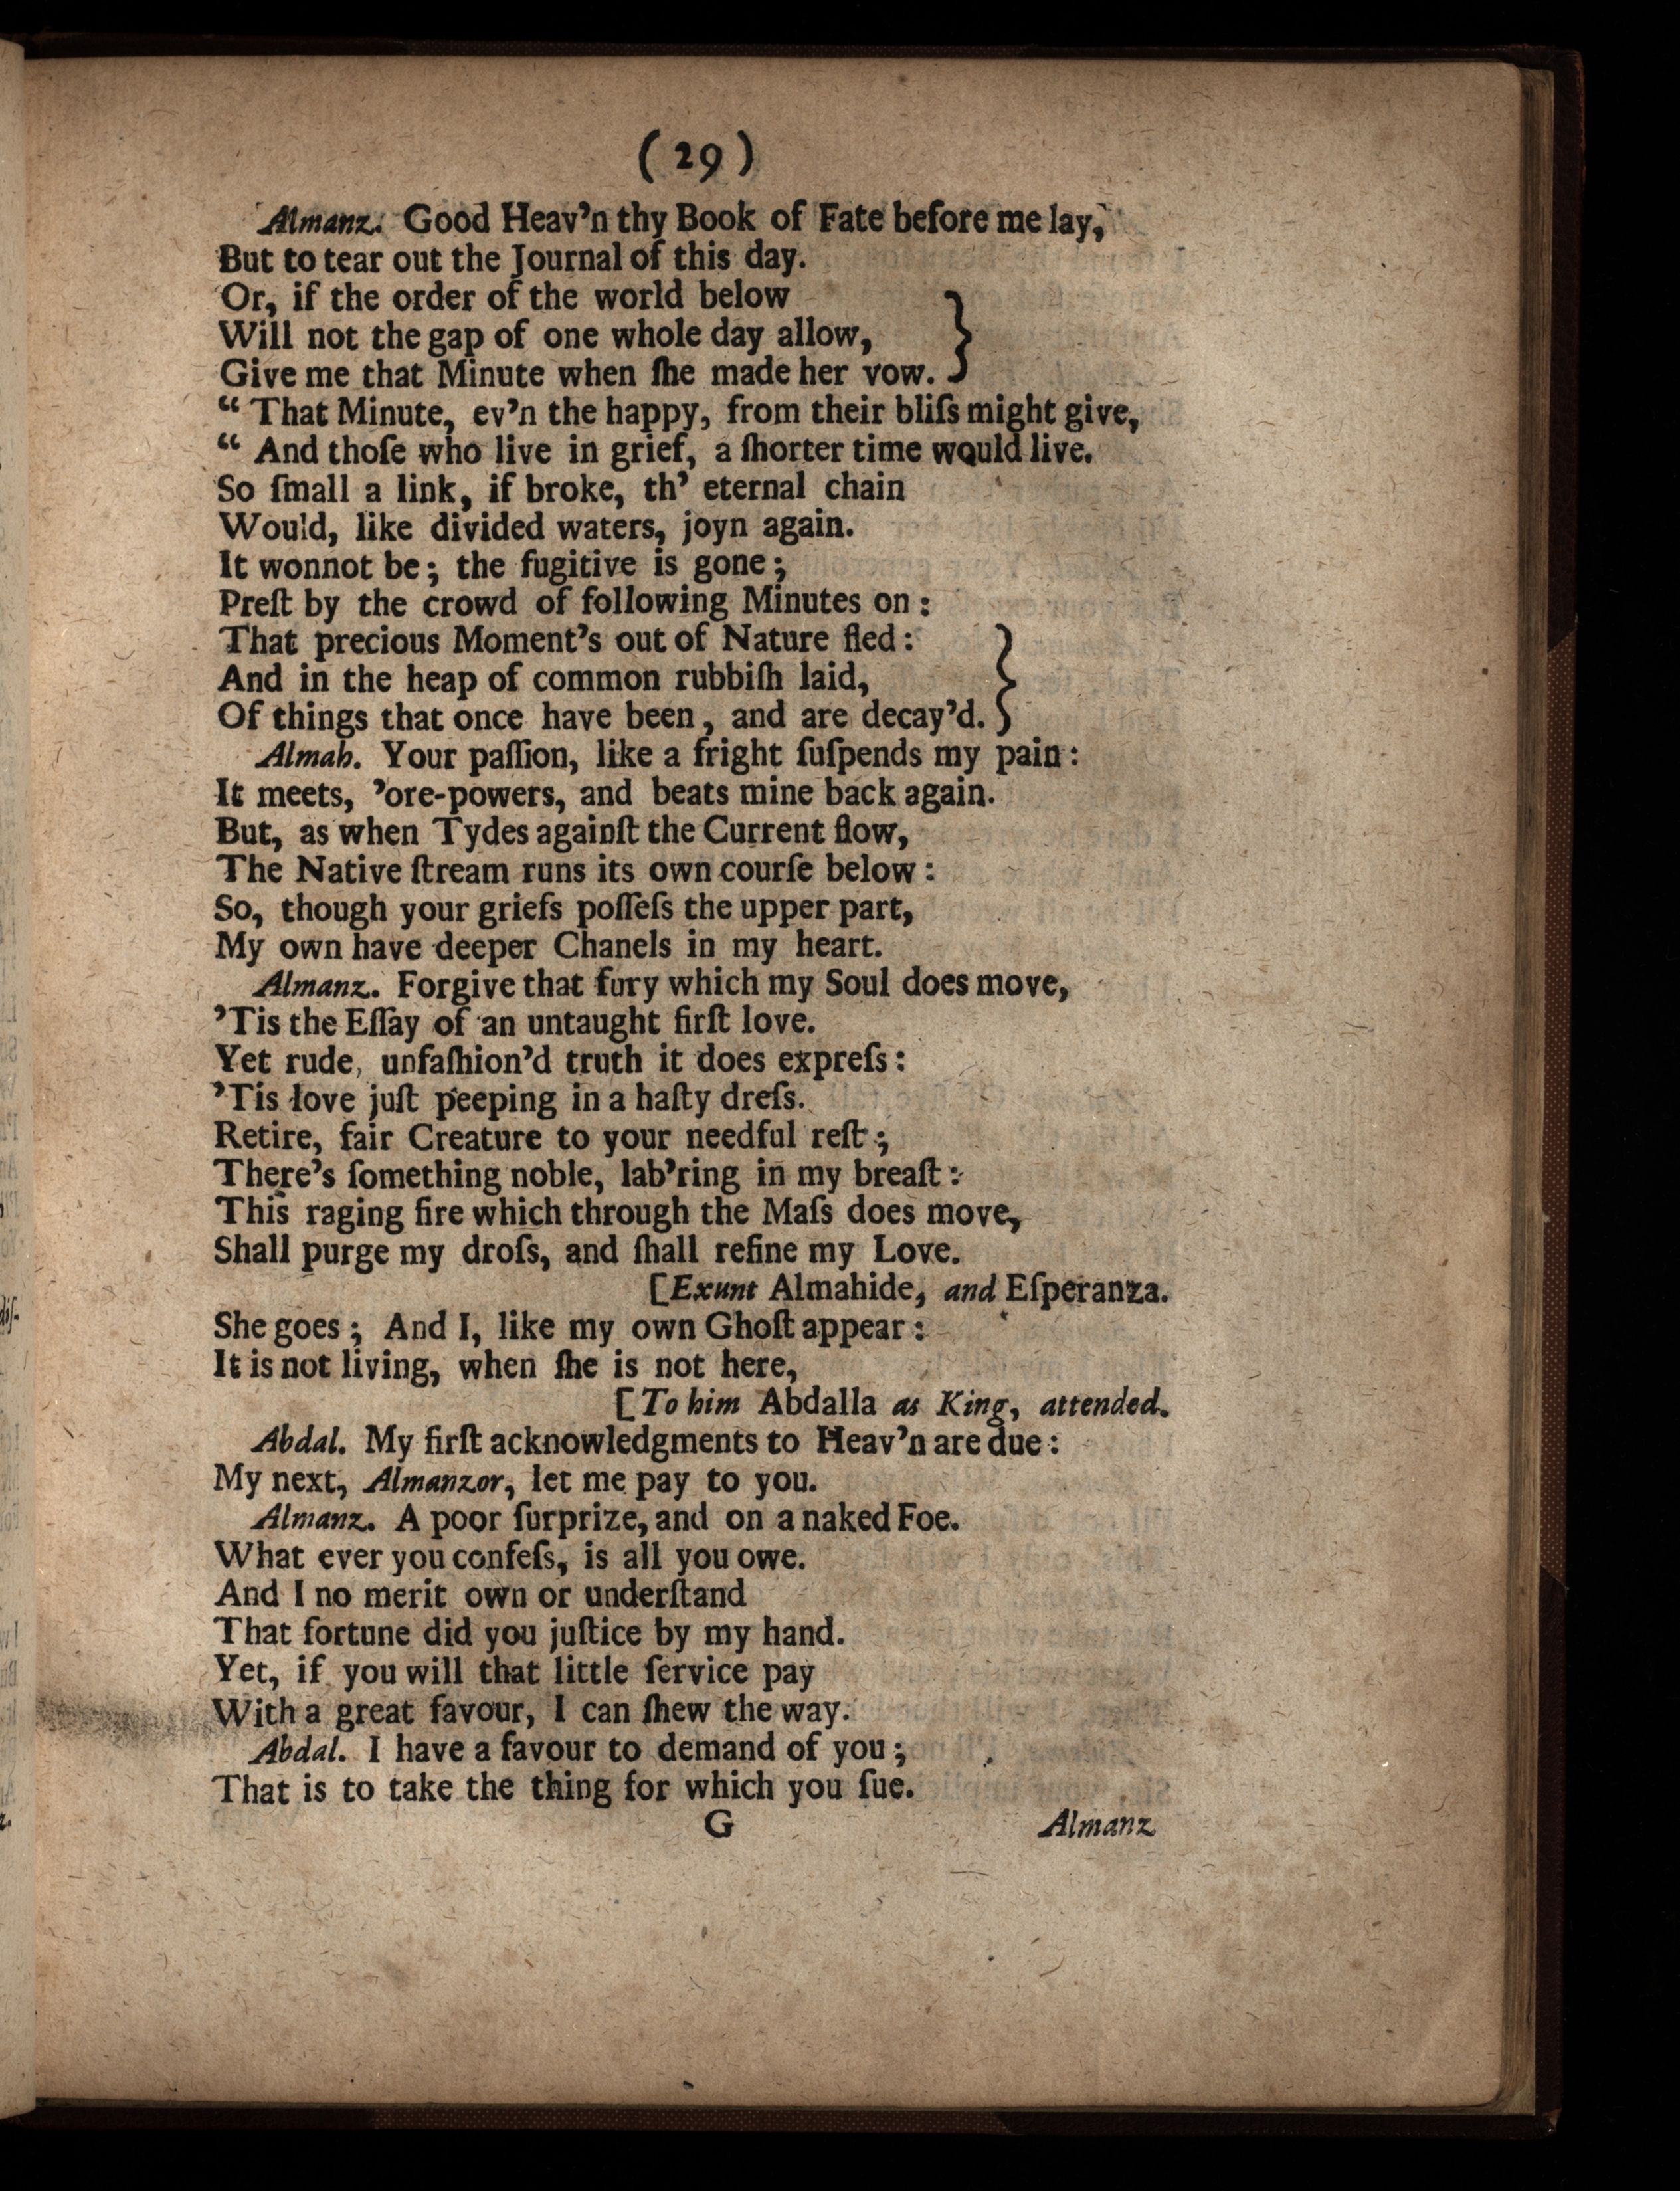 ( 29 )
Almanz. Good Heav’n thy Book of Fate before me lay,
But to tear out the Journal of this day.
Or, if the order of the world below
Will not the gap of one whole day allow,
Give me that Minute when ſhe made her vow.
“ That Minute, ev’n the happy, from their bliſs might give,
“ And thoſe who live in grief, a ſhorter time would live.
So ſmall a link, if broke, th’ eternal chain
Would, like divided waters, joyn again.
It wonnot be; the fugitive is gone;
Preſt by the crowd of following Minutes on:
That precious Moment’s out of Nature fled:
And in the heap of common rubbiſh laid,
Of things that once have been, and are decay’d.
Almah. Your paſſion, like a fright ſuſpends my pain:
It meets, ’ore-powers, and beats mine back again.
But, as when Tydes againſt the Current flow,
The Native ſtream runs its own courſe below:
So, though your griefs poſſeſs the upper part,
My own have deeper Chanels in my heart.
Almanz. Forgive that fury which my Soul does move,
’Tis the Eſſay of an untaught firſt love.
Yet rude, unfaſhion’d truth it does expreſs:
’Tis love juſt peeping in a haſty dreſs.
Retire, fair Creature to your needful reſt;
There’s ſomething noble, lab’ring in my breaſt:
This raging fire which through the Maſs does move,
Shall purge my droſs, and ſhall refine my Love.
[Exunt Almahide, and Eſperanza.
She goes; And I, like my own Ghoſt appear:
It is not living, when ſhe is not here,
[To him Abdalla as King, attended.
Abdal. My firſt acknowledgments to Heav’n are due:
My next, Almanzor, let me pay to you.
Almanz. A poor ſurprize, and on a naked Foe.
What ever you confeſs, is all you owe.
And I no merit own or underſtand
That fortune did you juſtice by my hand.
Yet, if you will that little ſervice pay
With a great favour, I can ſhew the way.
Abdal. I have a favour to demand of you;
That is to take the thing for which you ſue.
G Almanz